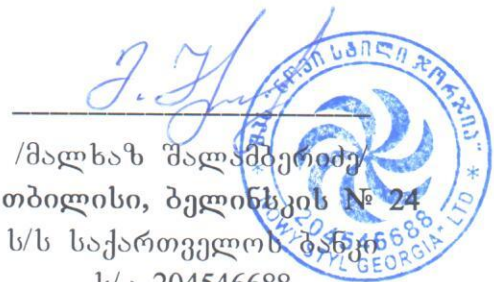 /მალხაზ შალამბერიძე/
თბილისი, ბელინსკის № 24
ს/ს საქართველოს ბანკი
204546688
შპს "ნოვი სტილი ჯორჯია"
204546688
"NOWY STYL GEORGIA" LTD